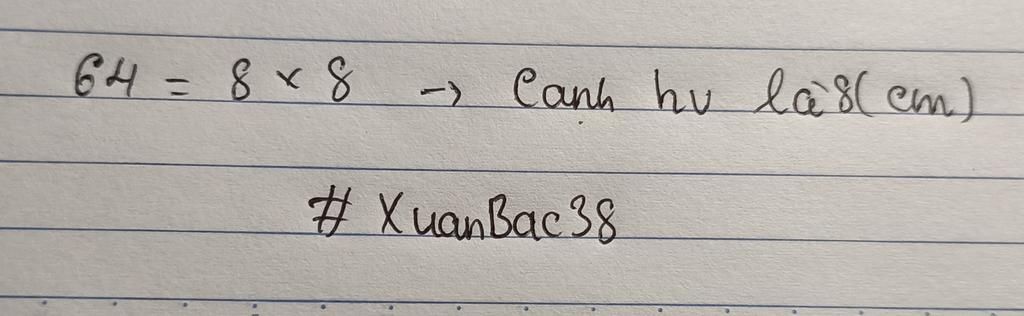 64 = 8 x 8 → Cạnh hv là 8(cm)
# XuanBac38